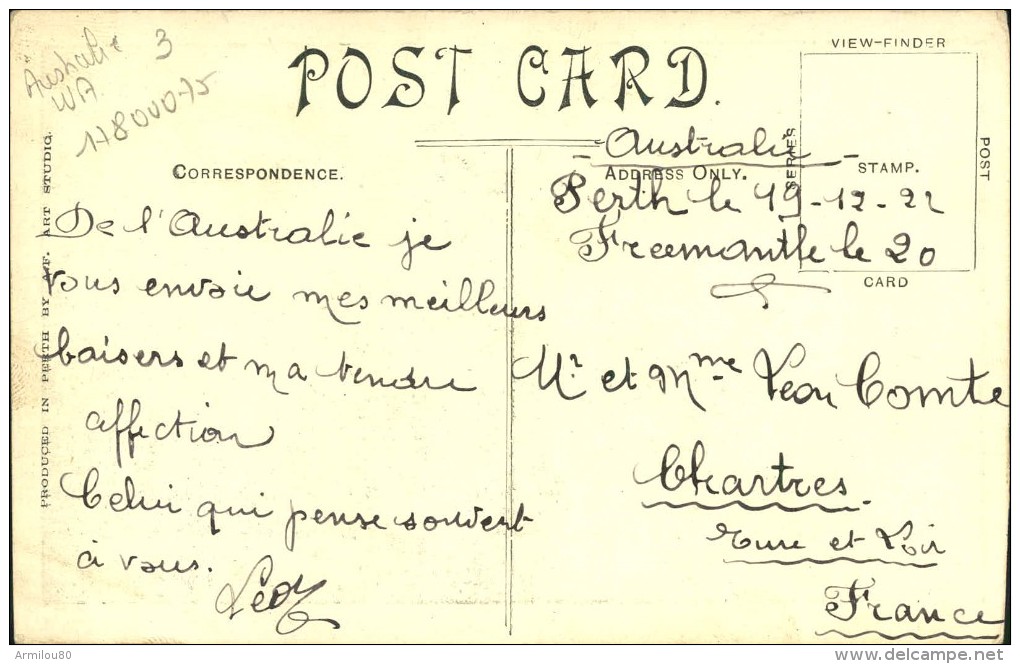 Australie 3
WA
POST CARD.
VIEW-FINDER
SERIES
POST
STAMP.
CARD
CORRESPONDENCE.
ADDRESS ONLY.
PRODUCED IN PERTH BY A.F. ART STUDIO.
De l'Australie je
vous envoie mes meilleurs
baisers et ma tendre
affection
Celui qui pense souvent
à vous.
Léon
- Australie -
Perth le 19-12-22
Freemanthe le 20
Mr et Mme Léon Comte
Chartres.
Eure et Loir
France
Armilou80
www.delcampe.net